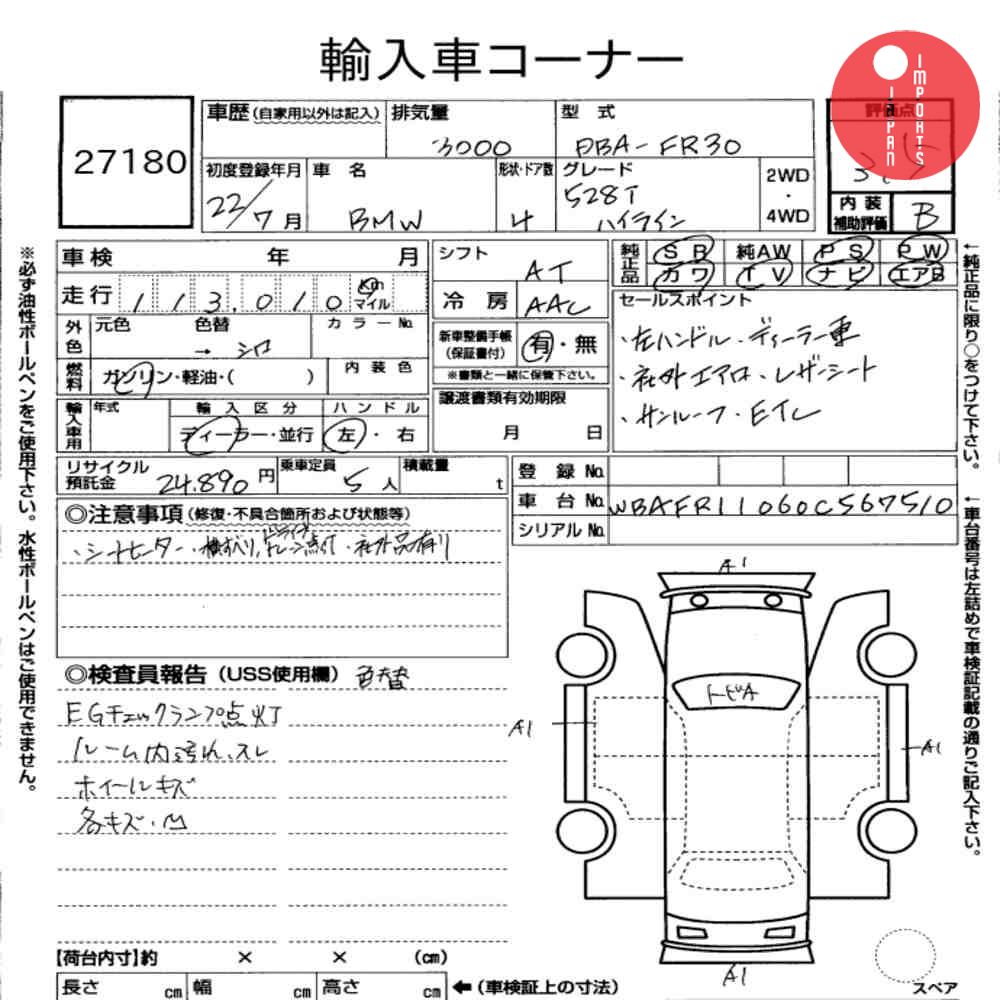 輸入車コーナー
JAPAN IMPORTS
27180
車歴(自家用以外は記入)
排気量
3000
型 式
DBA-FR30
評価点
3.5
初度登録年月
22/7月
車 名
BMW
形状・ドア数
4
グレード
528i
ハイライン
2WD
・
4WD
内 装
補助評価
B
車検 年 月
走行 113,010 Km マイル
外色 元色 色替 カラーNo.
→ シロ
燃料 ガソリン・軽油・( )
内装色
輸入車用 年式
輸入区分 ハンドル
ディーラー・並行 左・右
シフト AT
冷房 AAC
新車整備手帳
(保証書付)
有・無
※書類と一緒に保管下さい。
譲渡書類有効期限
月 日
純正品 SR 純AW PS PW
カワ TV ナビ エアB
セールスポイント
・左ハンドル・ディーラー車
・社外エアロ・レザーシート
・サンルーフ・ETC
リサイクル
預託金
24.890円
乗車定員 5人
積載量 t
登録No.
車台No. WBAFR11060C567510
シリアルNo.
◎注意事項(修復・不具合箇所および状態等)
・シートヒーター・横すべり,ドライブトレーン点灯・社外品有り
◎検査員報告(USS使用欄) 色替
EGチェックランプ点灯
ルーム内汚れ、スレ
ホイールキズ
各キズ・凹
A1
トビA
A1
A1
A1
【荷台内寸】約 × × (cm)
長さ cm 幅 cm 高さ cm ←(車検証上の寸法)
スペア
※必ず油性ボールペンをご使用下さい。水性ボールペンはご使用できません。
←純正品に限り○をつけて下さい。
←車台番号は左詰めで車検証記載の通りご記入下さい。